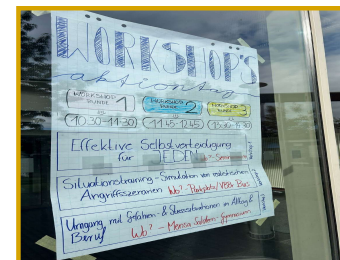 WORKSHOPS
aktionstag
WORKSHOP RUNDE 1
WORKSHOP RUNDE 2
WORKSHOP RUNDE 3
10:30-11:30
11:45-12:45
Effektive Selbstverteidigung
für JEDEN
Situationstraining - Simulation von realistischen
Angriffsszenarien Wo? Parkplatz / VBB Bus
Umgang mit Gefahren- & Stresssituationen im Alltag &
Beruf Wo? - Mensa